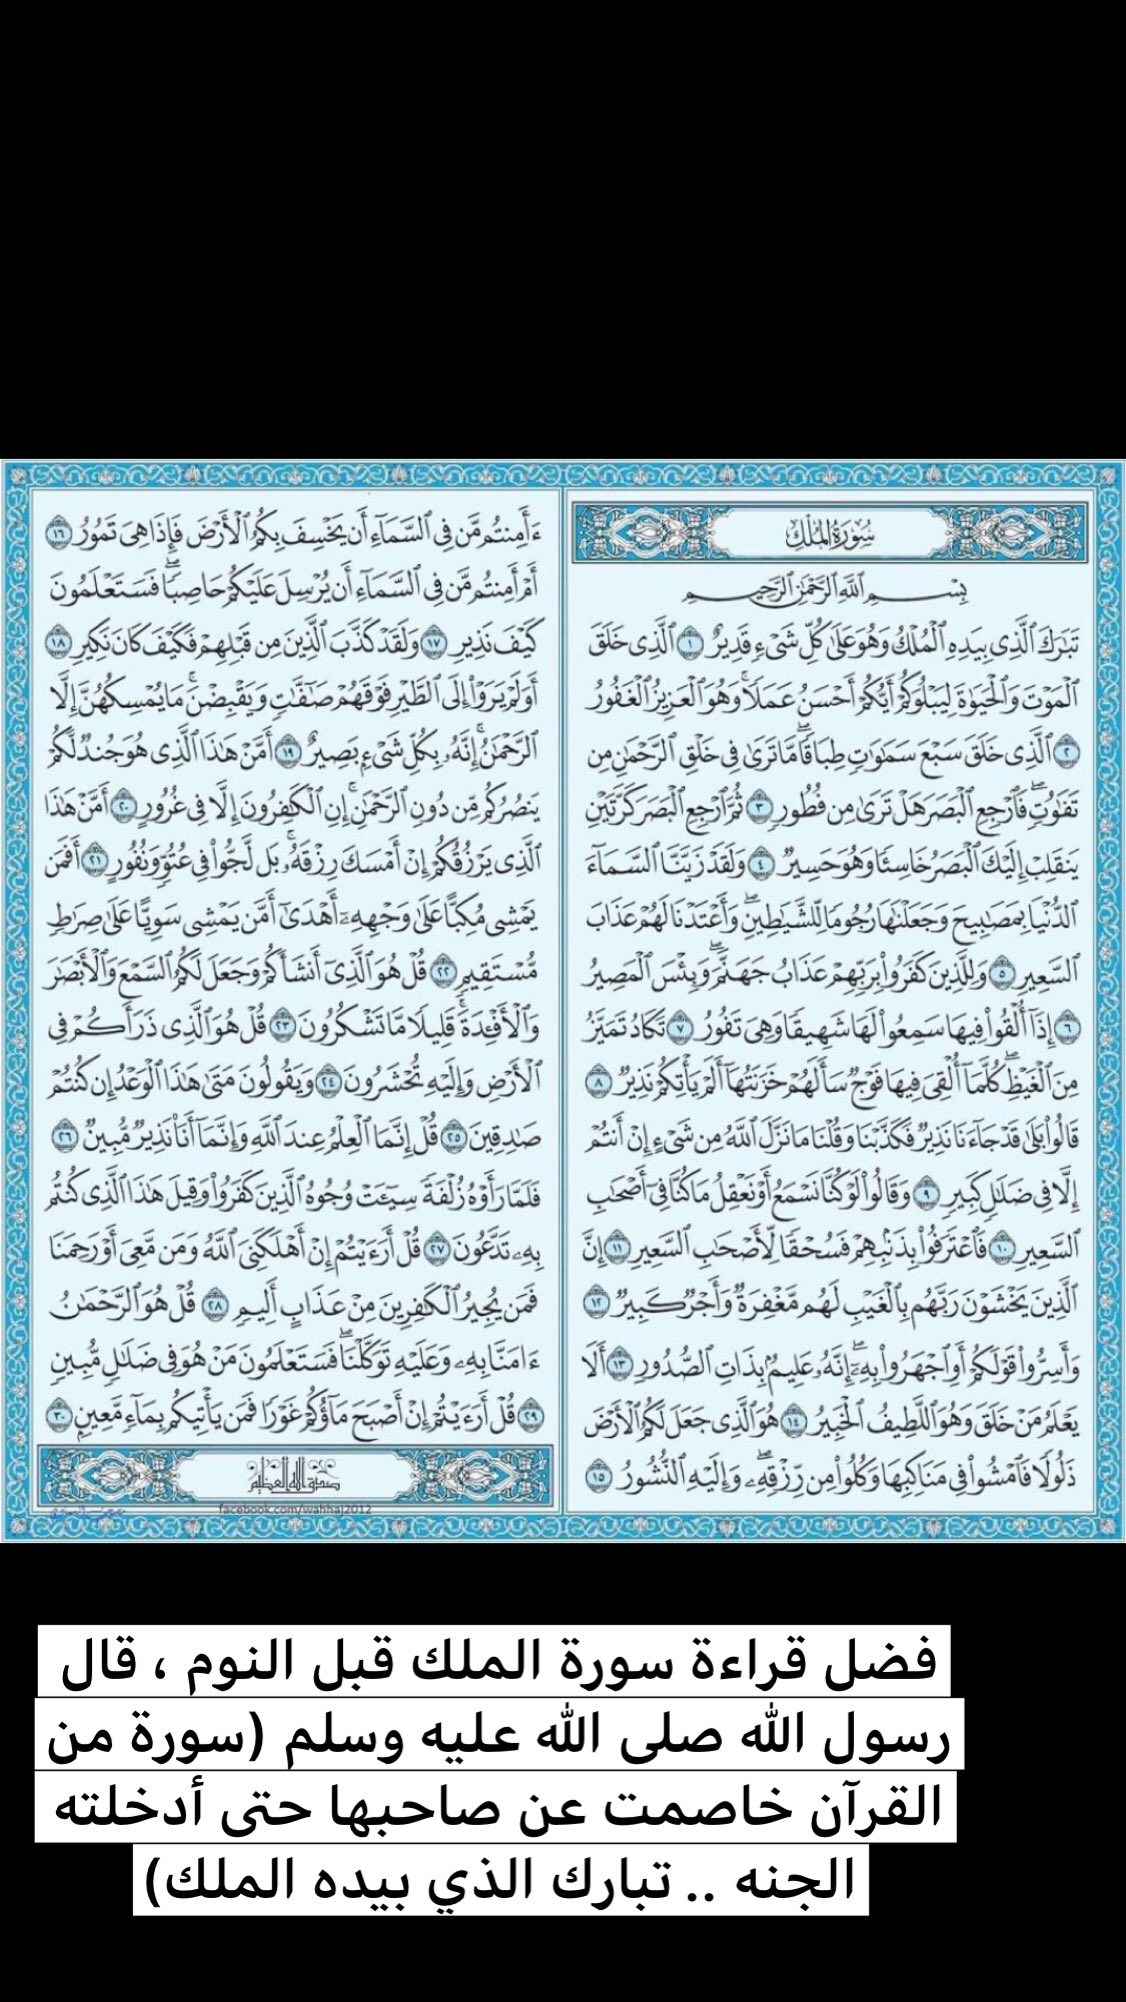 سُورَةُ المُلْكِ
بِسْمِ ٱللَّهِ ٱلرَّحْمَٰنِ ٱلرَّحِيمِ
تَبَٰرَكَ ٱلَّذِى بِيَدِهِ ٱلْمُلْكُ وَهُوَ عَلَىٰ كُلِّ شَىْءٍ قَدِيرٌ ١ ٱلَّذِى خَلَقَ
ٱلْمَوْتَ وَٱلْحَيَوٰةَ لِيَبْلُوَكُمْ أَيُّكُمْ أَحْسَنُ عَمَلًا ۚ وَهُوَ ٱلْعَزِيزُ ٱلْغَفُورُ
٢ ٱلَّذِى خَلَقَ سَبْعَ سَمَٰوَٰتٍ طِبَاقًا ۖ مَّا تَرَىٰ فِى خَلْقِ ٱلرَّحْمَٰنِ مِن
تَفَٰوُتٍ ۖ فَٱرْجِعِ ٱلْبَصَرَ هَلْ تَرَىٰ مِن فُطُورٍ ٣ ثُمَّ ٱرْجِعِ ٱلْبَصَرَ كَرَّتَيْنِ
يَنقَلِبْ إِلَيْكَ ٱلْبَصَرُ خَاسِئًا وَهُوَ حَسِيرٌ ٤ وَلَقَدْ زَيَّنَّا ٱلسَّمَآءَ
ٱلدُّنْيَا بِمَصَٰبِيحَ وَجَعَلْنَٰهَا رُجُومًا لِّلشَّيَٰطِينِ ۖ وَأَعْتَدْنَا لَهُمْ عَذَابَ
ٱلسَّعِيرِ ٥ وَلِلَّذِينَ كَفَرُوا۟ بِرَبِّهِمْ عَذَابُ جَهَنَّمَ ۖ وَبِئْسَ ٱلْمَصِيرُ
٦ إِذَآ أُلْقُوا۟ فِيهَا سَمِعُوا۟ لَهَا شَهِيقًا وَهِىَ تَفُورُ ٧ تَكَادُ تَمَيَّزُ
مِنَ ٱلْغَيْظِ ۖ كُلَّمَآ أُلْقِىَ فِيهَا فَوْجٌ سَأَلَهُمْ خَزَنَتُهَآ أَلَمْ يَأْتِكُمْ نَذِيرٌ ٨
قَالُوا۟ بَلَىٰ قَدْ جَآءَنَا نَذِيرٌ فَكَذَّبْنَا وَقُلْنَا مَا نَزَّلَ ٱللَّهُ مِن شَىْءٍ إِنْ أَنتُمْ
إِلَّا فِى ضَلَٰلٍ كَبِيرٍ ٩ وَقَالُوا۟ لَوْ كُنَّا نَسْمَعُ أَوْ نَعْقِلُ مَا كُنَّا فِىٓ أَصْحَٰبِ
ٱلسَّعِيرِ ١٠ فَٱعْتَرَفُوا۟ بِذَنۢبِهِمْ فَسُحْقًا لِّأَصْحَٰبِ ٱلسَّعِيرِ ١١ إِنَّ
ٱلَّذِينَ يَخْشَوْنَ رَبَّهُم بِٱلْغَيْبِ لَهُم مَّغْفِرَةٌ وَأَجْرٌ كَبِيرٌ ١٢
وَأَسِرُّوا۟ قَوْلَكُمْ أَوِ ٱجْهَرُوا۟ بِهِۦٓ ۖ إِنَّهُۥ عَلِيمٌۢ بِذَاتِ ٱلصُّدُورِ ١٣ أَلَا
يَعْلَمُ مَنْ خَلَقَ وَهُوَ ٱللَّطِيفُ ٱلْخَبِيرُ ١٤ هُوَ ٱلَّذِى جَعَلَ لَكُمُ ٱلْأَرْضَ
ذَلُولًا فَٱمْشُوا۟ فِى مَنَاكِبِهَا وَكُلُوا۟ مِن رِّزْقِهِۦ ۖ وَإِلَيْهِ ٱلنُّشُورُ ١٥
ءَأَمِنتُم مَّن فِى ٱلسَّمَآءِ أَن يَخْسِفَ بِكُمُ ٱلْأَرْضَ فَإِذَا هِىَ تَمُورُ ١٦
أَمْ أَمِنتُم مَّن فِى ٱلسَّمَآءِ أَن يُرْسِلَ عَلَيْكُمْ حَاصِبًا ۖ فَسَتَعْلَمُونَ
كَيْفَ نَذِيرِ ١٧ وَلَقَدْ كَذَّبَ ٱلَّذِينَ مِن قَبْلِهِمْ فَكَيْفَ كَانَ نَكِيرِ ١٨
أَوَلَمْ يَرَوْا۟ إِلَى ٱلطَّيْرِ فَوْقَهُمْ صَٰٓفَّٰتٍ وَيَقْبِضْنَ ۚ مَا يُمْسِكُهُنَّ إِلَّا
ٱلرَّحْمَٰنُ ۚ إِنَّهُۥ بِكُلِّ شَىْءٍۭ بَصِيرٌ ١٩ أَمَّنْ هَٰذَا ٱلَّذِى هُوَ جُندٌ لَّكُمْ
يَنصُرُكُم مِّن دُونِ ٱلرَّحْمَٰنِ ۚ إِنِ ٱلْكَٰفِرُونَ إِلَّا فِى غُرُورٍ ٢٠ أَمَّنْ هَٰذَا
ٱلَّذِى يَرْزُقُكُمْ إِنْ أَمْسَكَ رِزْقَهُۥ ۚ بَل لَّجُّوا۟ فِى عُتُوٍّ وَنُفُورٍ ٢١ أَفَمَن
يَمْشِى مُكِبًّا عَلَىٰ وَجْهِهِۦٓ أَهْدَىٰٓ أَمَّن يَمْشِى سَوِيًّا عَلَىٰ صِرَٰطٍ
مُّسْتَقِيمٍ ٢٢ قُلْ هُوَ ٱلَّذِىٓ أَنشَأَكُمْ وَجَعَلَ لَكُمُ ٱلسَّمْعَ وَٱلْأَبْصَٰرَ
وَٱلْأَفْـِٔدَةَ ۖ قَلِيلًا مَّا تَشْكُرُونَ ٢٣ قُلْ هُوَ ٱلَّذِى ذَرَأَكُمْ فِى
ٱلْأَرْضِ وَإِلَيْهِ تُحْشَرُونَ ٢٤ وَيَقُولُونَ مَتَىٰ هَٰذَا ٱلْوَعْدُ إِن كُنتُمْ
صَٰدِقِينَ ٢٥ قُلْ إِنَّمَا ٱلْعِلْمُ عِندَ ٱللَّهِ وَإِنَّمَآ أَنَا۠ نَذِيرٌ مُّبِينٌ ٢٦
فَلَمَّا رَأَوْهُ زُلْفَةً سِيٓـَٔتْ وُجُوهُ ٱلَّذِينَ كَفَرُوا۟ وَقِيلَ هَٰذَا ٱلَّذِى كُنتُم
بِهِۦ تَدَّعُونَ ٢٧ قُلْ أَرَءَيْتُمْ إِنْ أَهْلَكَنِىَ ٱللَّهُ وَمَن مَّعِىَ أَوْ رَحِمَنَا
فَمَن يُجِيرُ ٱلْكَٰفِرِينَ مِنْ عَذَابٍ أَلِيمٍ ٢٨ قُلْ هُوَ ٱلرَّحْمَٰنُ
ءَامَنَّا بِهِۦ وَعَلَيْهِ تَوَكَّلْنَا ۖ فَسَتَعْلَمُونَ مَنْ هُوَ فِى ضَلَٰلٍ مُّبِينٍ
٢٩ قُلْ أَرَءَيْتُمْ إِنْ أَصْبَحَ مَآؤُكُمْ غَوْرًا فَمَن يَأْتِيكُم بِمَآءٍ مَّعِينٍۭ ٣٠
صدق الله العظيم
facebook.com/wahhaj2012
فضل قراءة سورة الملك قبل النوم ، قال
رسول الله صلى الله عليه وسلم (سورة من
القرآن خاصمت عن صاحبها حتى أدخلته
الجنه .. تبارك الذي بيده الملك)